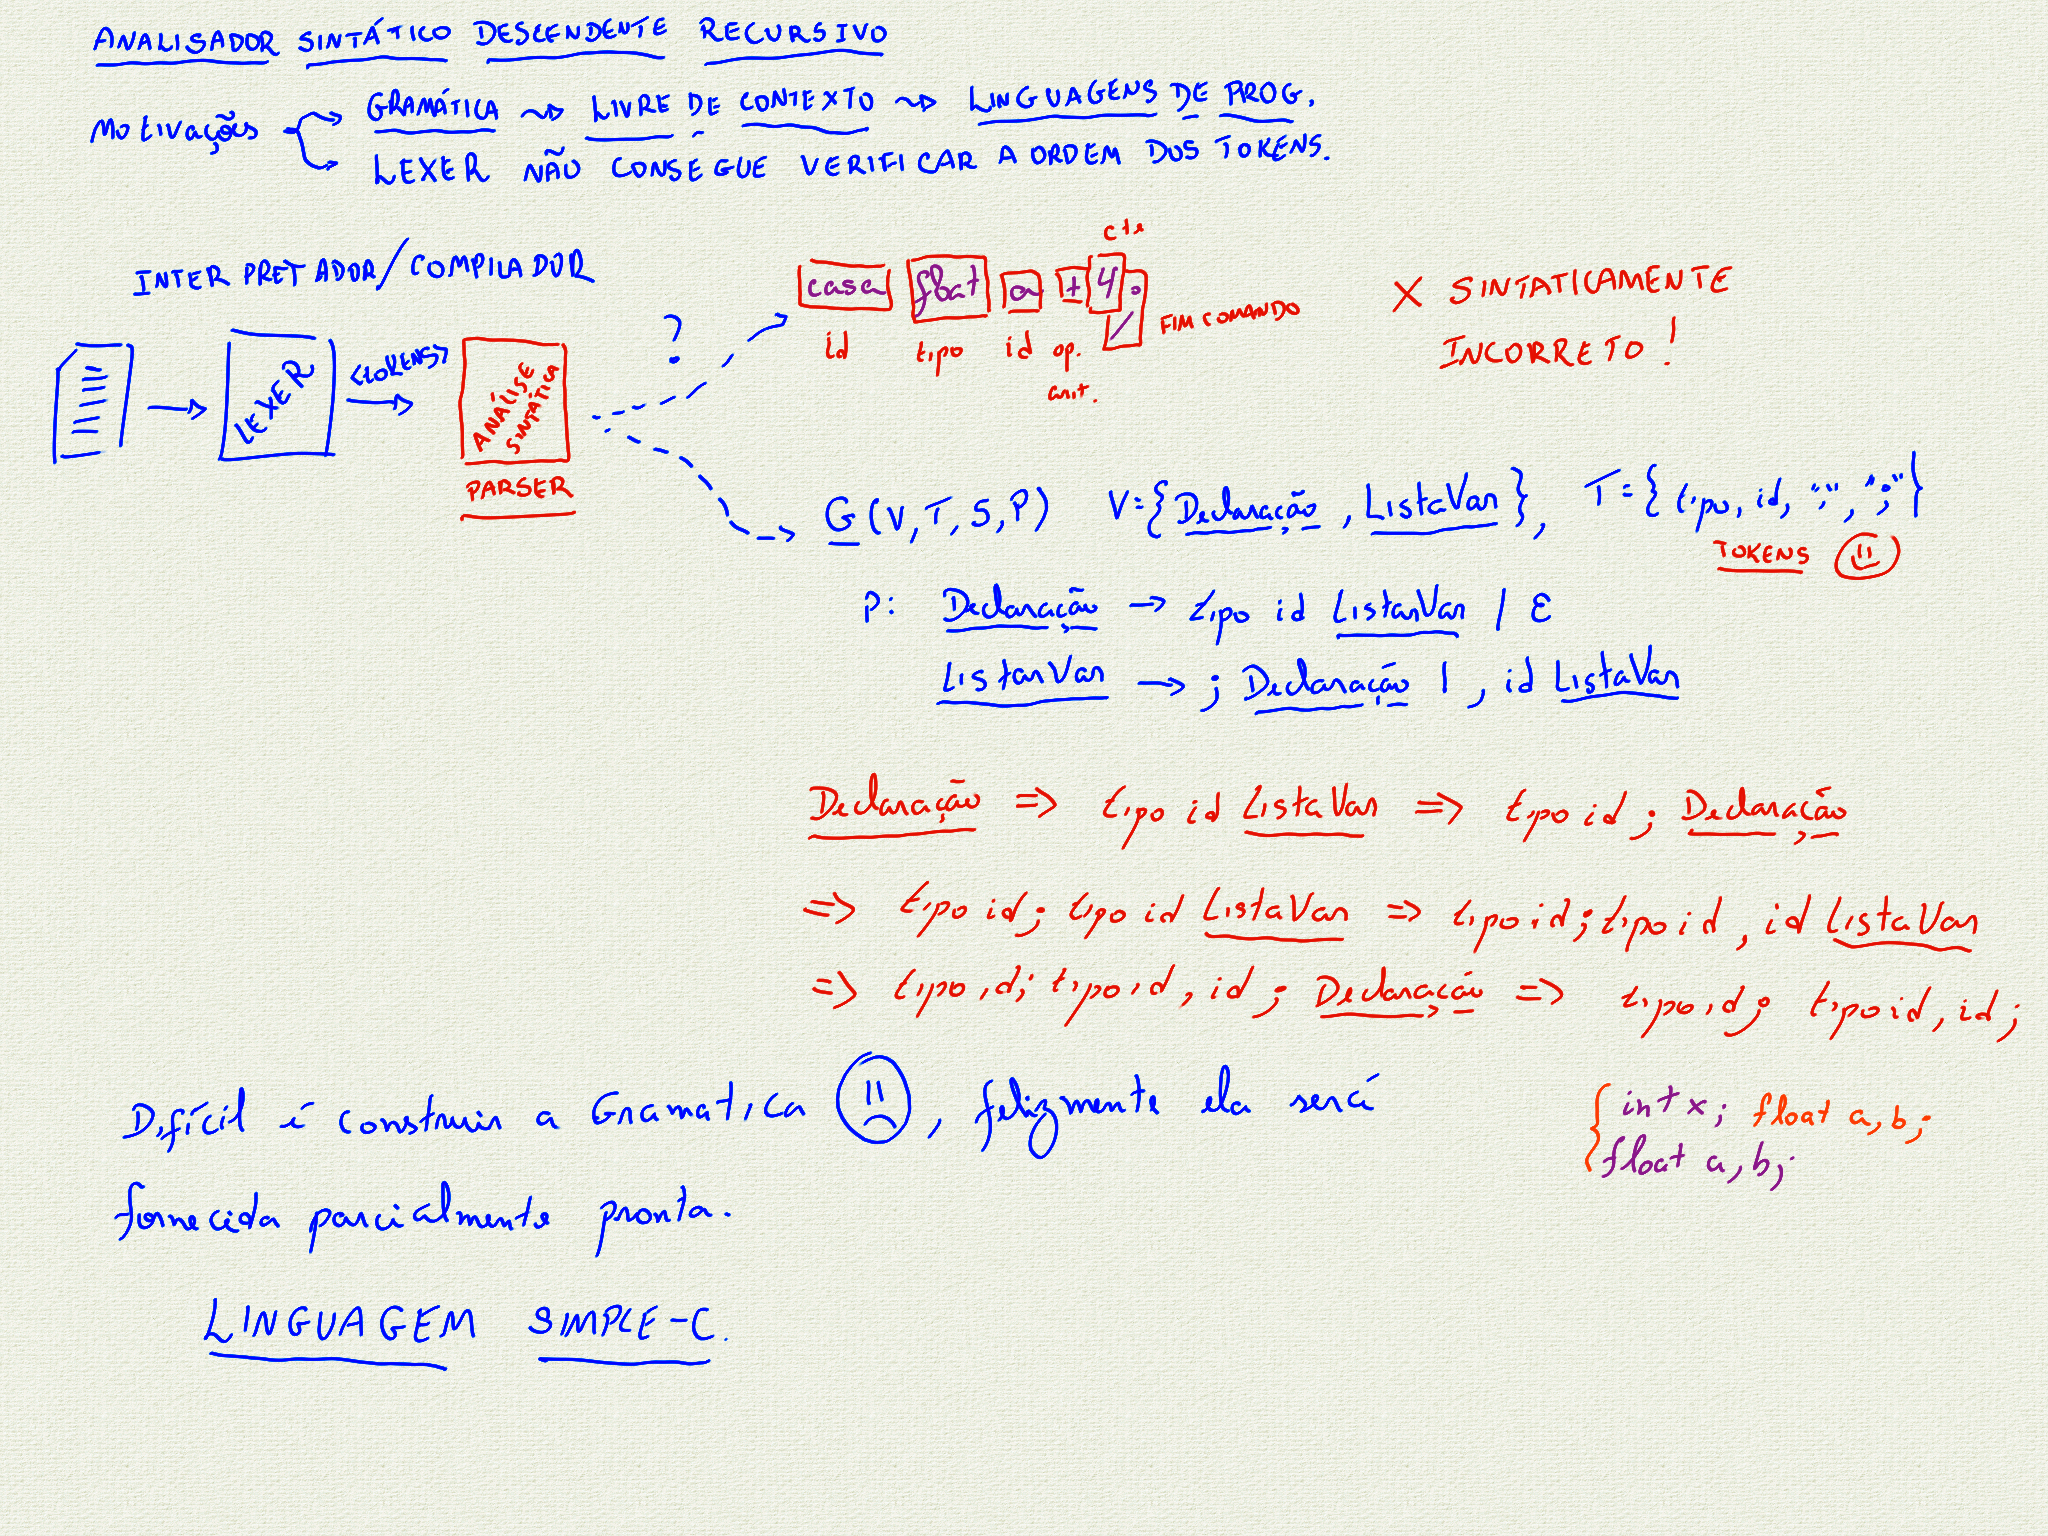 ANALISADOR SINTÁTICO DESCENDENTE RECURSIVO
MOTIVAÇÕES GRAMÁTICA ⇝ LIVRE DE CONTEXTO ⇝ LINGUAGENS DE PROG.
LEXER NÃO CONSEGUE VERIFICAR A ORDEM DOS TOKENS.
INTERPRETADOR/COMPILADOR
LEXER
<TOKENS>
ANÁLISE SINTÁTICA
PARSER
?
cte
casa float a + 4 ;
id tipo id op. arit.
FIM COMANDO
X SINTATICAMENTE
INCORRETO!
G(V, T, S, P) V={Declaração, ListaVar}, T={tipo, id, ",", ";"}
TOKENS
P: Declaração → tipo id ListarVar | ε
ListarVar → ; Declaração | , id ListaVar
Declaração => tipo id ListaVar => tipo id; Declaração
=> tipo id; tipo id ListaVar => tipo id; tipo id, id ListaVar
=> tipo id; tipo id, id; Declaração => tipo id; tipo id, id;
Difícil é construir a Gramatica , felizmente ela será
fornecida parcialmente pronta.
{ int x; float a, b;
float a, b;
LINGUAGEM SIMPLE-C.